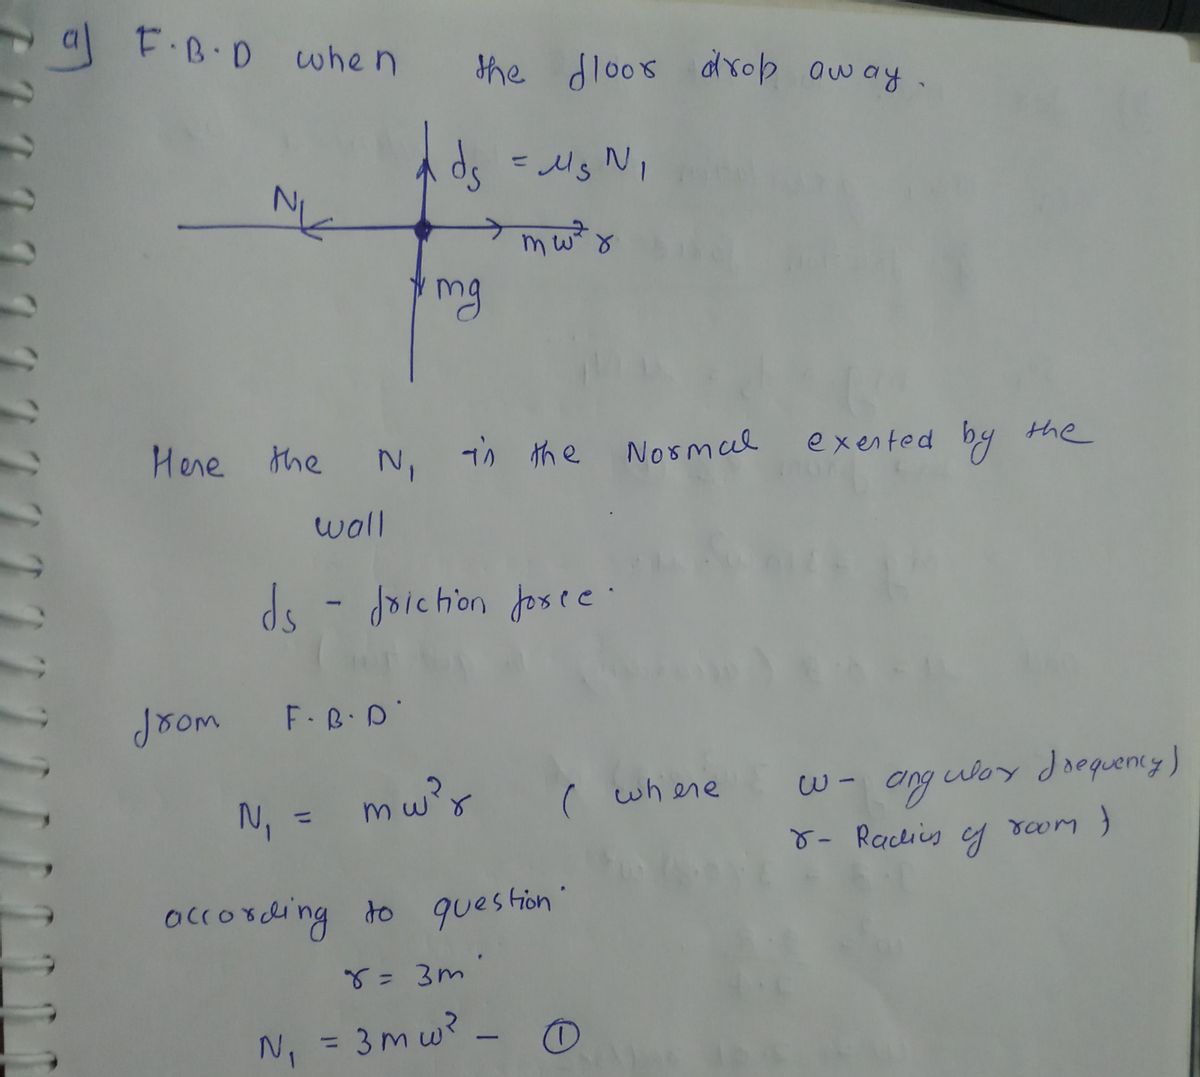 a) F.B.D when the floor drop away.
fs = μs N1
N1
mω²r
mg
Here the N1 is the Normal exerted by the
wall
fs - friction force.
from F.B.D.
N1 = mω²r ( where ω - angular frequency)
r - Radius of room )
according to question.
r = 3m.
N1 = 3mω² - ①